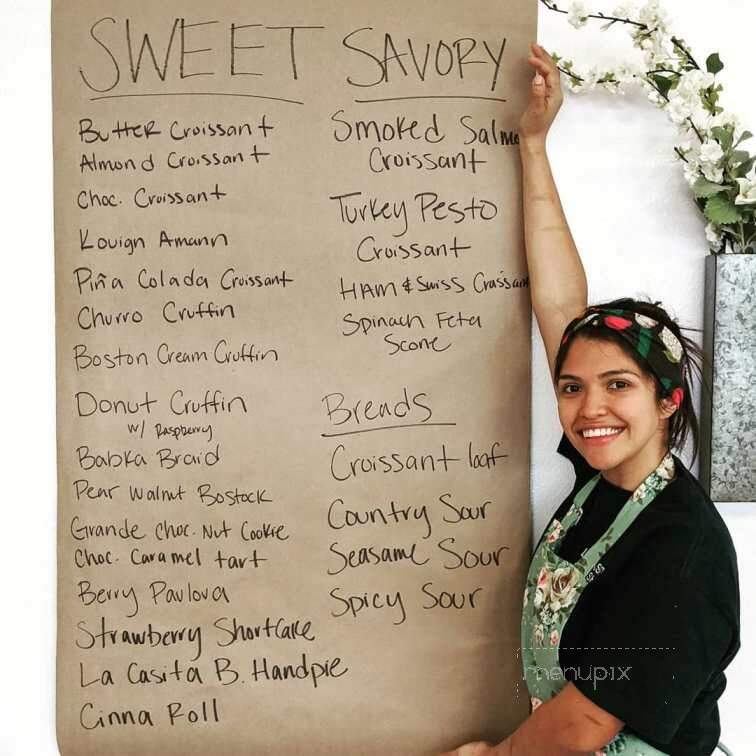 SWEET
Butter Croissant
Almond Croissant
Choc. Croissant
Kouign Amann
Piña Colada Croissant
Churro Cruffin
Boston Cream Cruffin
Donut Cruffin
w/ Raspberry
Babka Braid
Pear Walnut Bostock
Grande Choc. Nut Cookie
Choc. Caramel tart
Berry Pavlova
Strawberry Shortcake
La Casita B. Handpie
Cinna Roll
SAVORY
Smoked Salmo
Croissant
Turkey Pesto
Croissant
HAM & Swiss Croissan
Spinach Feta
Scone
Breads
Croissant loaf
Country Sour
Seasame Sour
Spicy Sour
menupix